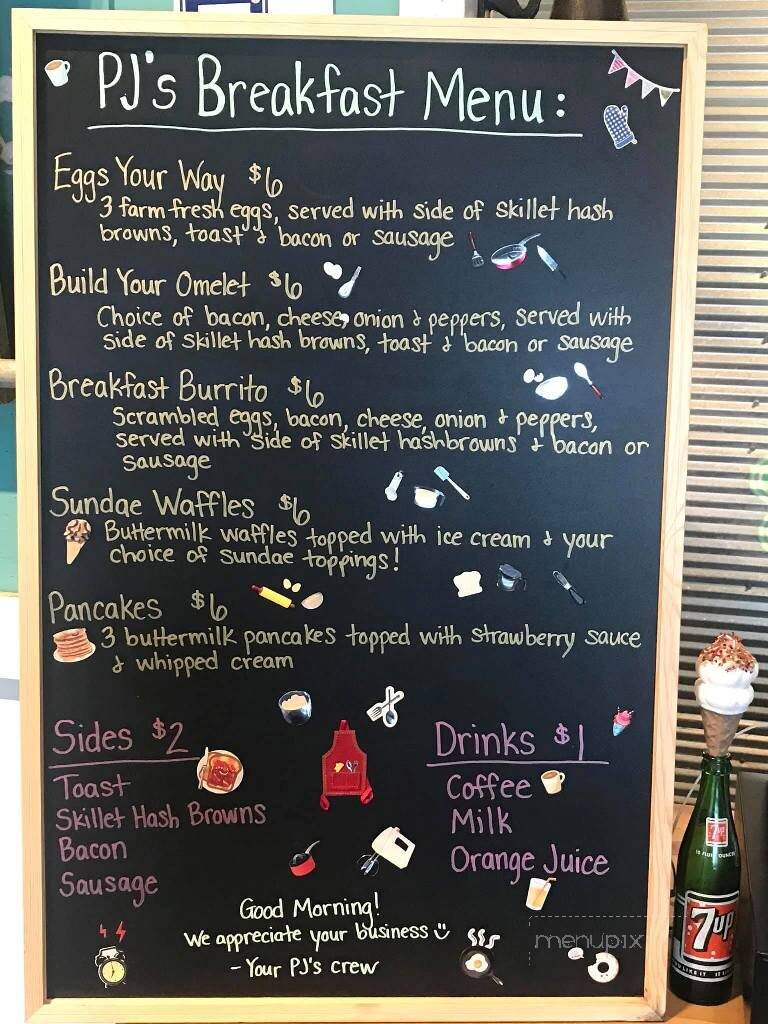 PJ's Breakfast Menu:
Eggs Your Way $6
3 farm fresh eggs, served with side of skillet hash
browns, toast & bacon or sausage
Build Your Omelet $6
Choice of bacon, cheese, onion & peppers, served with
side of skillet hash browns, toast & bacon or sausage
Breakfast Burrito $6
Scrambled eggs, bacon, cheese, onion & peppers,
served with side of skillet hashbrowns & bacon or
sausage
Sundae Waffles $6
Buttermilk waffles topped with ice cream & your
choice of sundae toppings!
Pancakes $6
3 buttermilk pancakes topped with strawberry sauce
& whipped cream
Sides $2
Toast
Skillet Hash Browns
Bacon
Sausage
Drinks $1
Coffee
Milk
Orange Juice
Good Morning!
We appreciate your business
- Your PJ's crew
menupix
7up
7up